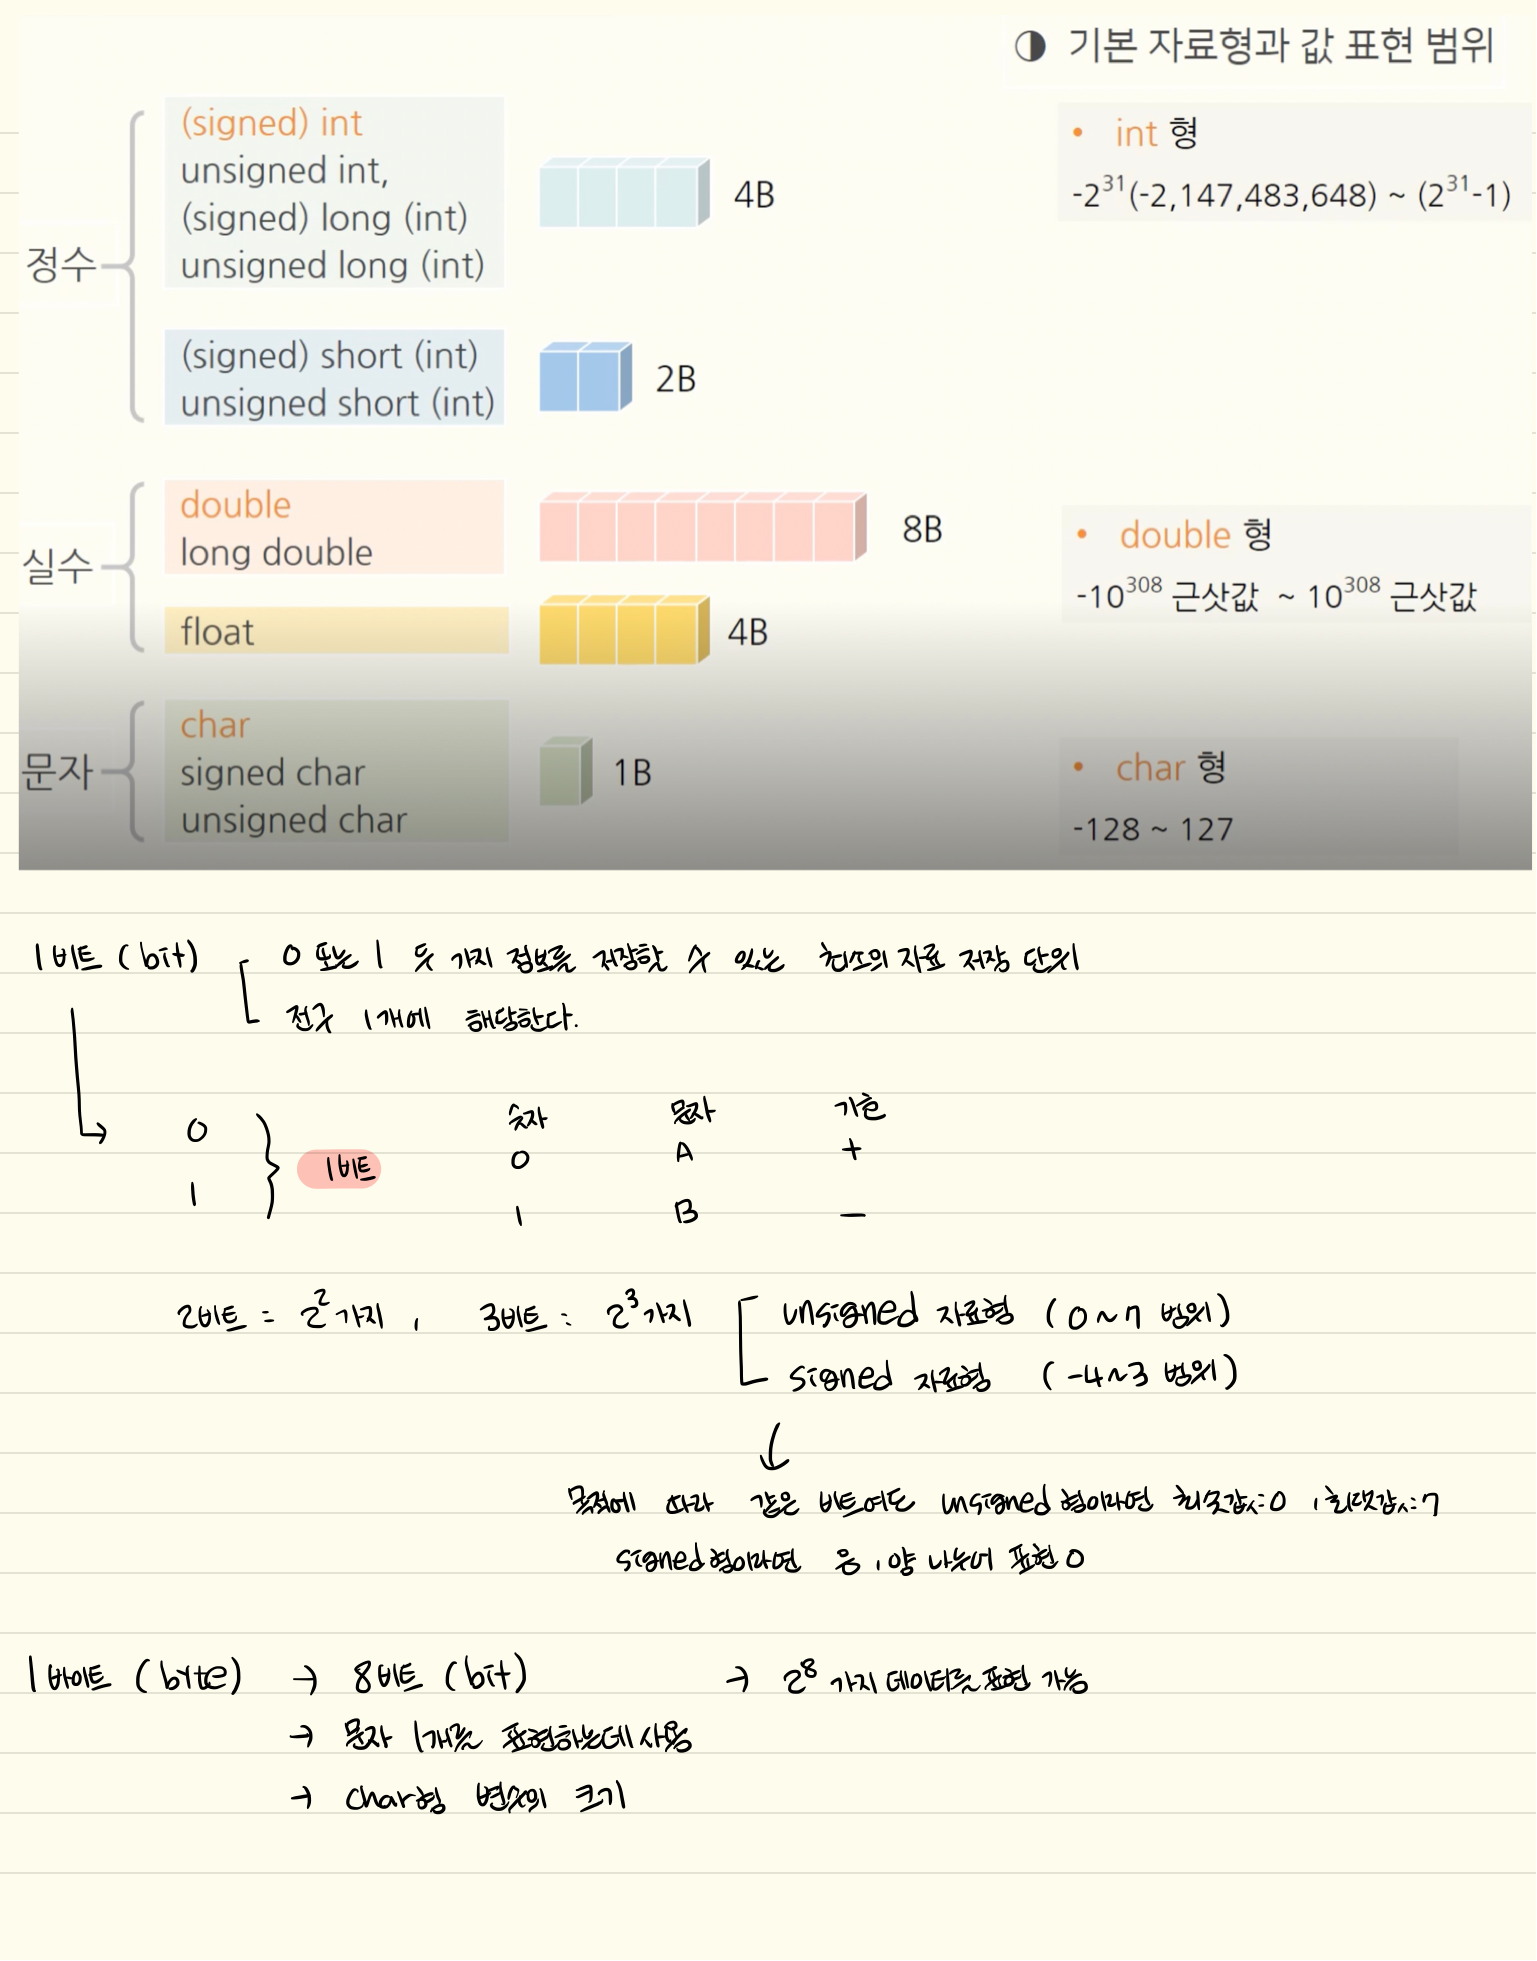 ◑ 기본 자료형과 값 표현 범위
정수
(signed) int
unsigned int,
(signed) long (int)
unsigned long (int)
4B
• int 형
-2³¹(-2,147,483,648) ~ (2³¹-1)
(signed) short (int)
unsigned short (int)
2B
실수
double
long double
8B
• double 형
-10³⁰⁸ 근삿값 ~ 10³⁰⁸ 근삿값
float
4B
문자
char
signed char
unsigned char
1B
• char 형
-128 ~ 127
1비트 (bit) 0 또는 1 두 가지 정보를 저장할 수 있는 최소의 자료 저장 단위
전구 1개에 해당한다.
숫자 문자 기호
0 0 A +
1비트
1 1 B -
2비트 = 2²가지, 3비트 = 2³가지 unsigned 자료형 (0~7 범위)
signed 자료형 (-4~3 범위)
목적에 따라 같은 비트여도 unsigned형이라면 최솟값:0, 최댓값:7
signed형이라면 음, 양 나누어 표현 0
1바이트 (byte) → 8비트 (bit) → 2⁸가지 데이터를 표현 가능
→ 문자 1개를 표현하는데 사용
→ char형 변수의 크기